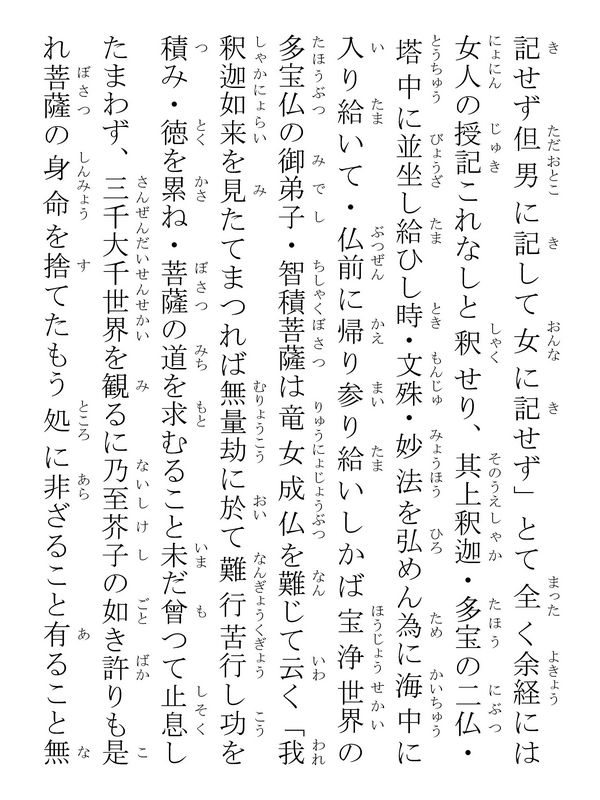 記せず但男に記して女に記せず」とて全く余経には
女人の授記これなしと釈せり、其上釈迦・多宝の二仏・
塔中に並坐し給ひし時・文殊・妙法を弘めん為に海中に
入り給いて・仏前に帰り参り給いしかば宝浄世界の
多宝仏の御弟子・智積菩薩は竜女成仏を難じて云く「我
釈迦如来を見たてまつれば無量劫に於て難行苦行し功を
積み・徳を累ね・菩薩の道を求むること未だ曾つて止息し
たまわず、三千大千世界を観るに乃至芥子の如き許りも是
れ菩薩の身命を捨てたもう処に非ざること有ること無